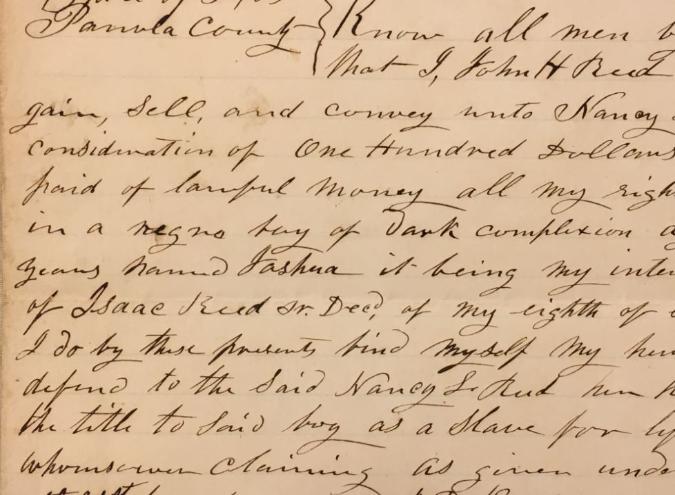 Panola County Know all men
that I, John H Reed
gain, Sell, and convey unto Nancy
consideration of One Hundred Dollars
paid of lawful money all my righ
in a negro boy of Dark complexion a
years named Joshua it being my inte
of Isaac Reed Sr. Decd, of my eighth of
I do by these presents bind myself my hei
defend to the Said Nancy S. Reed her h
the title to Said boy as a Slave for
whomsoever claiming as given unde